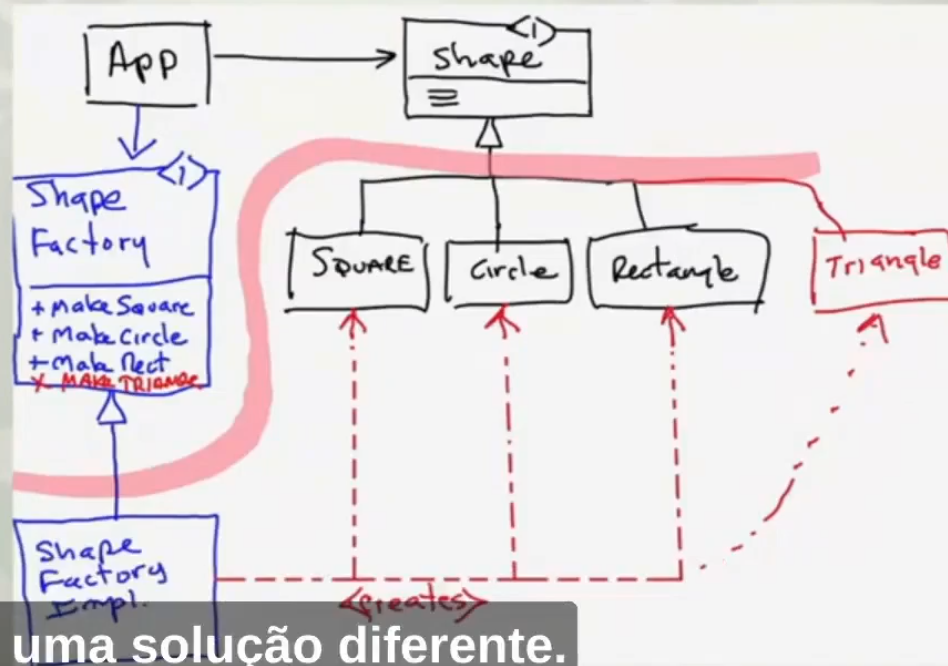 App
<I>
Shape
<I>
Shape
Factory
+ Make Square
+ Make Circle
+ Make Rect
X MAKE TRIANGLE
SQUARE
Circle
Rectangle
Triangle
Shape
Factory
Impl.
<creates>
uma solução diferente.